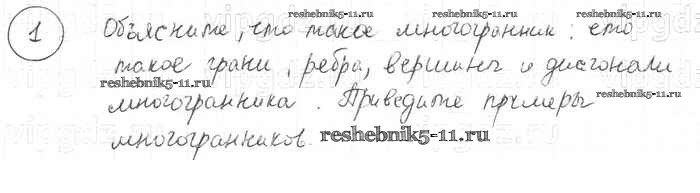 1 Объясните, что такое многогранник; что
такое грани, ребра, вершины и диагонали
многогранника. Приведите примеры
многогранников.
reshebnik5-11.ru
reshebnik5-11.ru
reshebnik5-11.ru
reshebnik5-11.ru